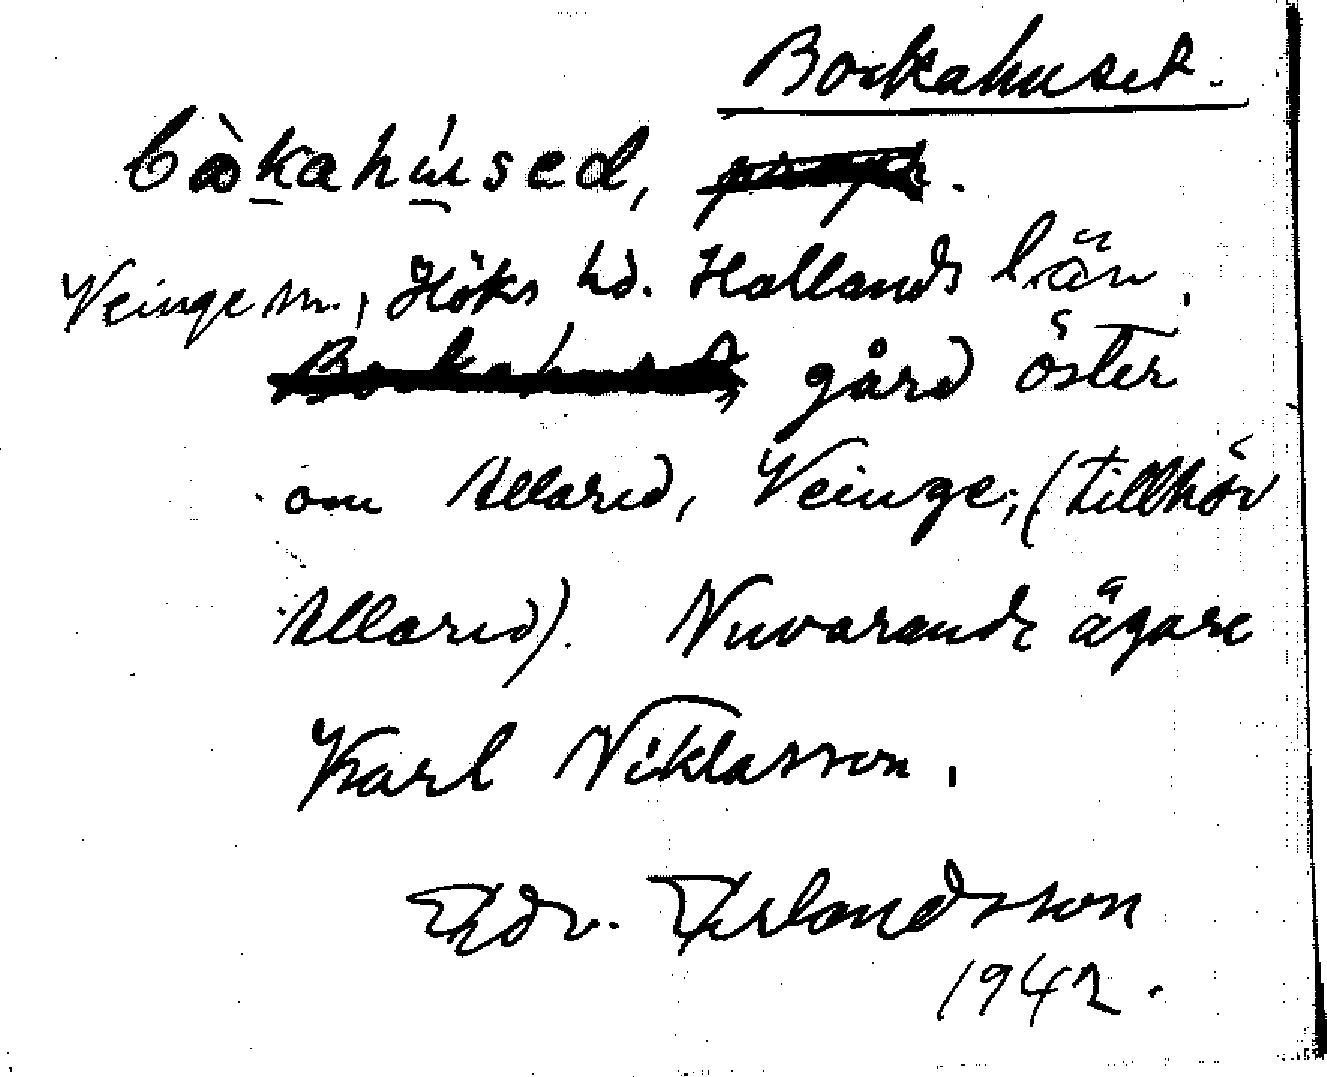 Bockahuset.
bòkahúsed,
Veinge sn., Höks hd. Hallands län.
Bockahuset, gård öster
om Allared, Veinge; (tillhör
Allared). Nuvarande ägare
Karl Niklasson.
Edv. Erlandsson
1942.